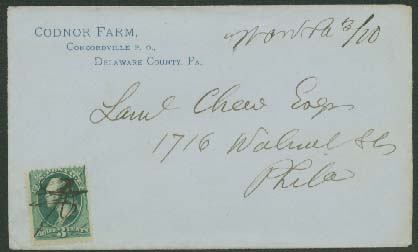 CODNOR FARM,
CONCORDVILLE P. O.,
DELAWARE COUNTY, PA.
3/10
Saml Chew Esqr
1716 Walnut St
Phila
3 CENTS